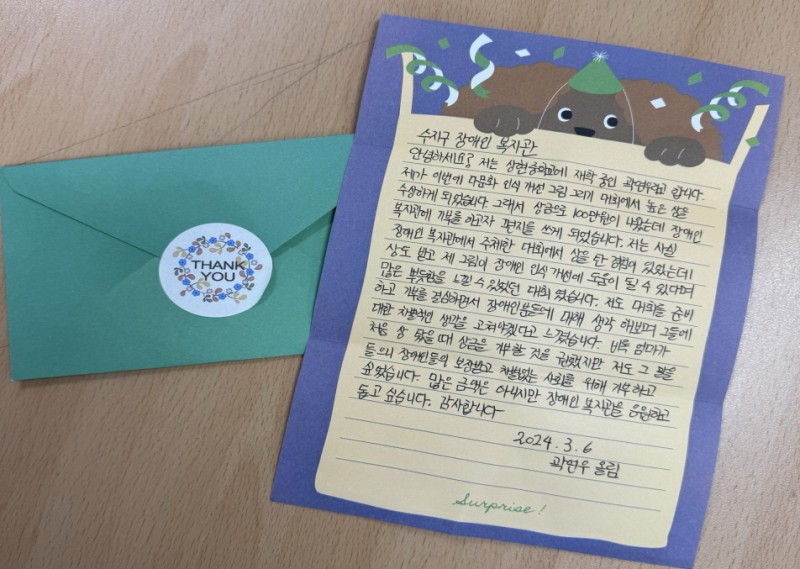 THANK
YOU
수지구 장애인 복지관
안녕하세요? 저는 상현중학교에 재학 중인 곽연우라고 합니다.
제가 이번에 다문화 인식 개선 그림 그리기 대회에서 높은 상을
수상하게 되었습니다. 그래서 상금으로 100만원이 나왔는데 장애인
복지관에 기부를 하고자 편지를 쓰게 되었습니다. 저는 사실
장애인 복지관에서 주최한 대회에서 상을 탄 경험이 있었는데
상도 받고 제 그림이 장애인 인식 개선에 도움이 될 수 있다며
많은 뿌듯함을 느낄 수 있었던 대회 였습니다. 저도 대회를 준비
하고 기부를 결심하면서 장애인분들에 대해 생각 해보며 그들에
대한 차별적인 생각을 고쳐야겠다고 느꼈습니다. 비록 엄마가
처음 상 탔을 때 상금을 기부할 것을 권했지만 저도 그 말을
들으니 장애인들의 보장받고 차별없는 사회를 위해 기부하고
싶었습니다. 많은 금액은 아니지만 장애인 복지관을 응원하고
돕고 싶습니다. 감사합니다
2024.3.6
곽연우 올림
Surprise!